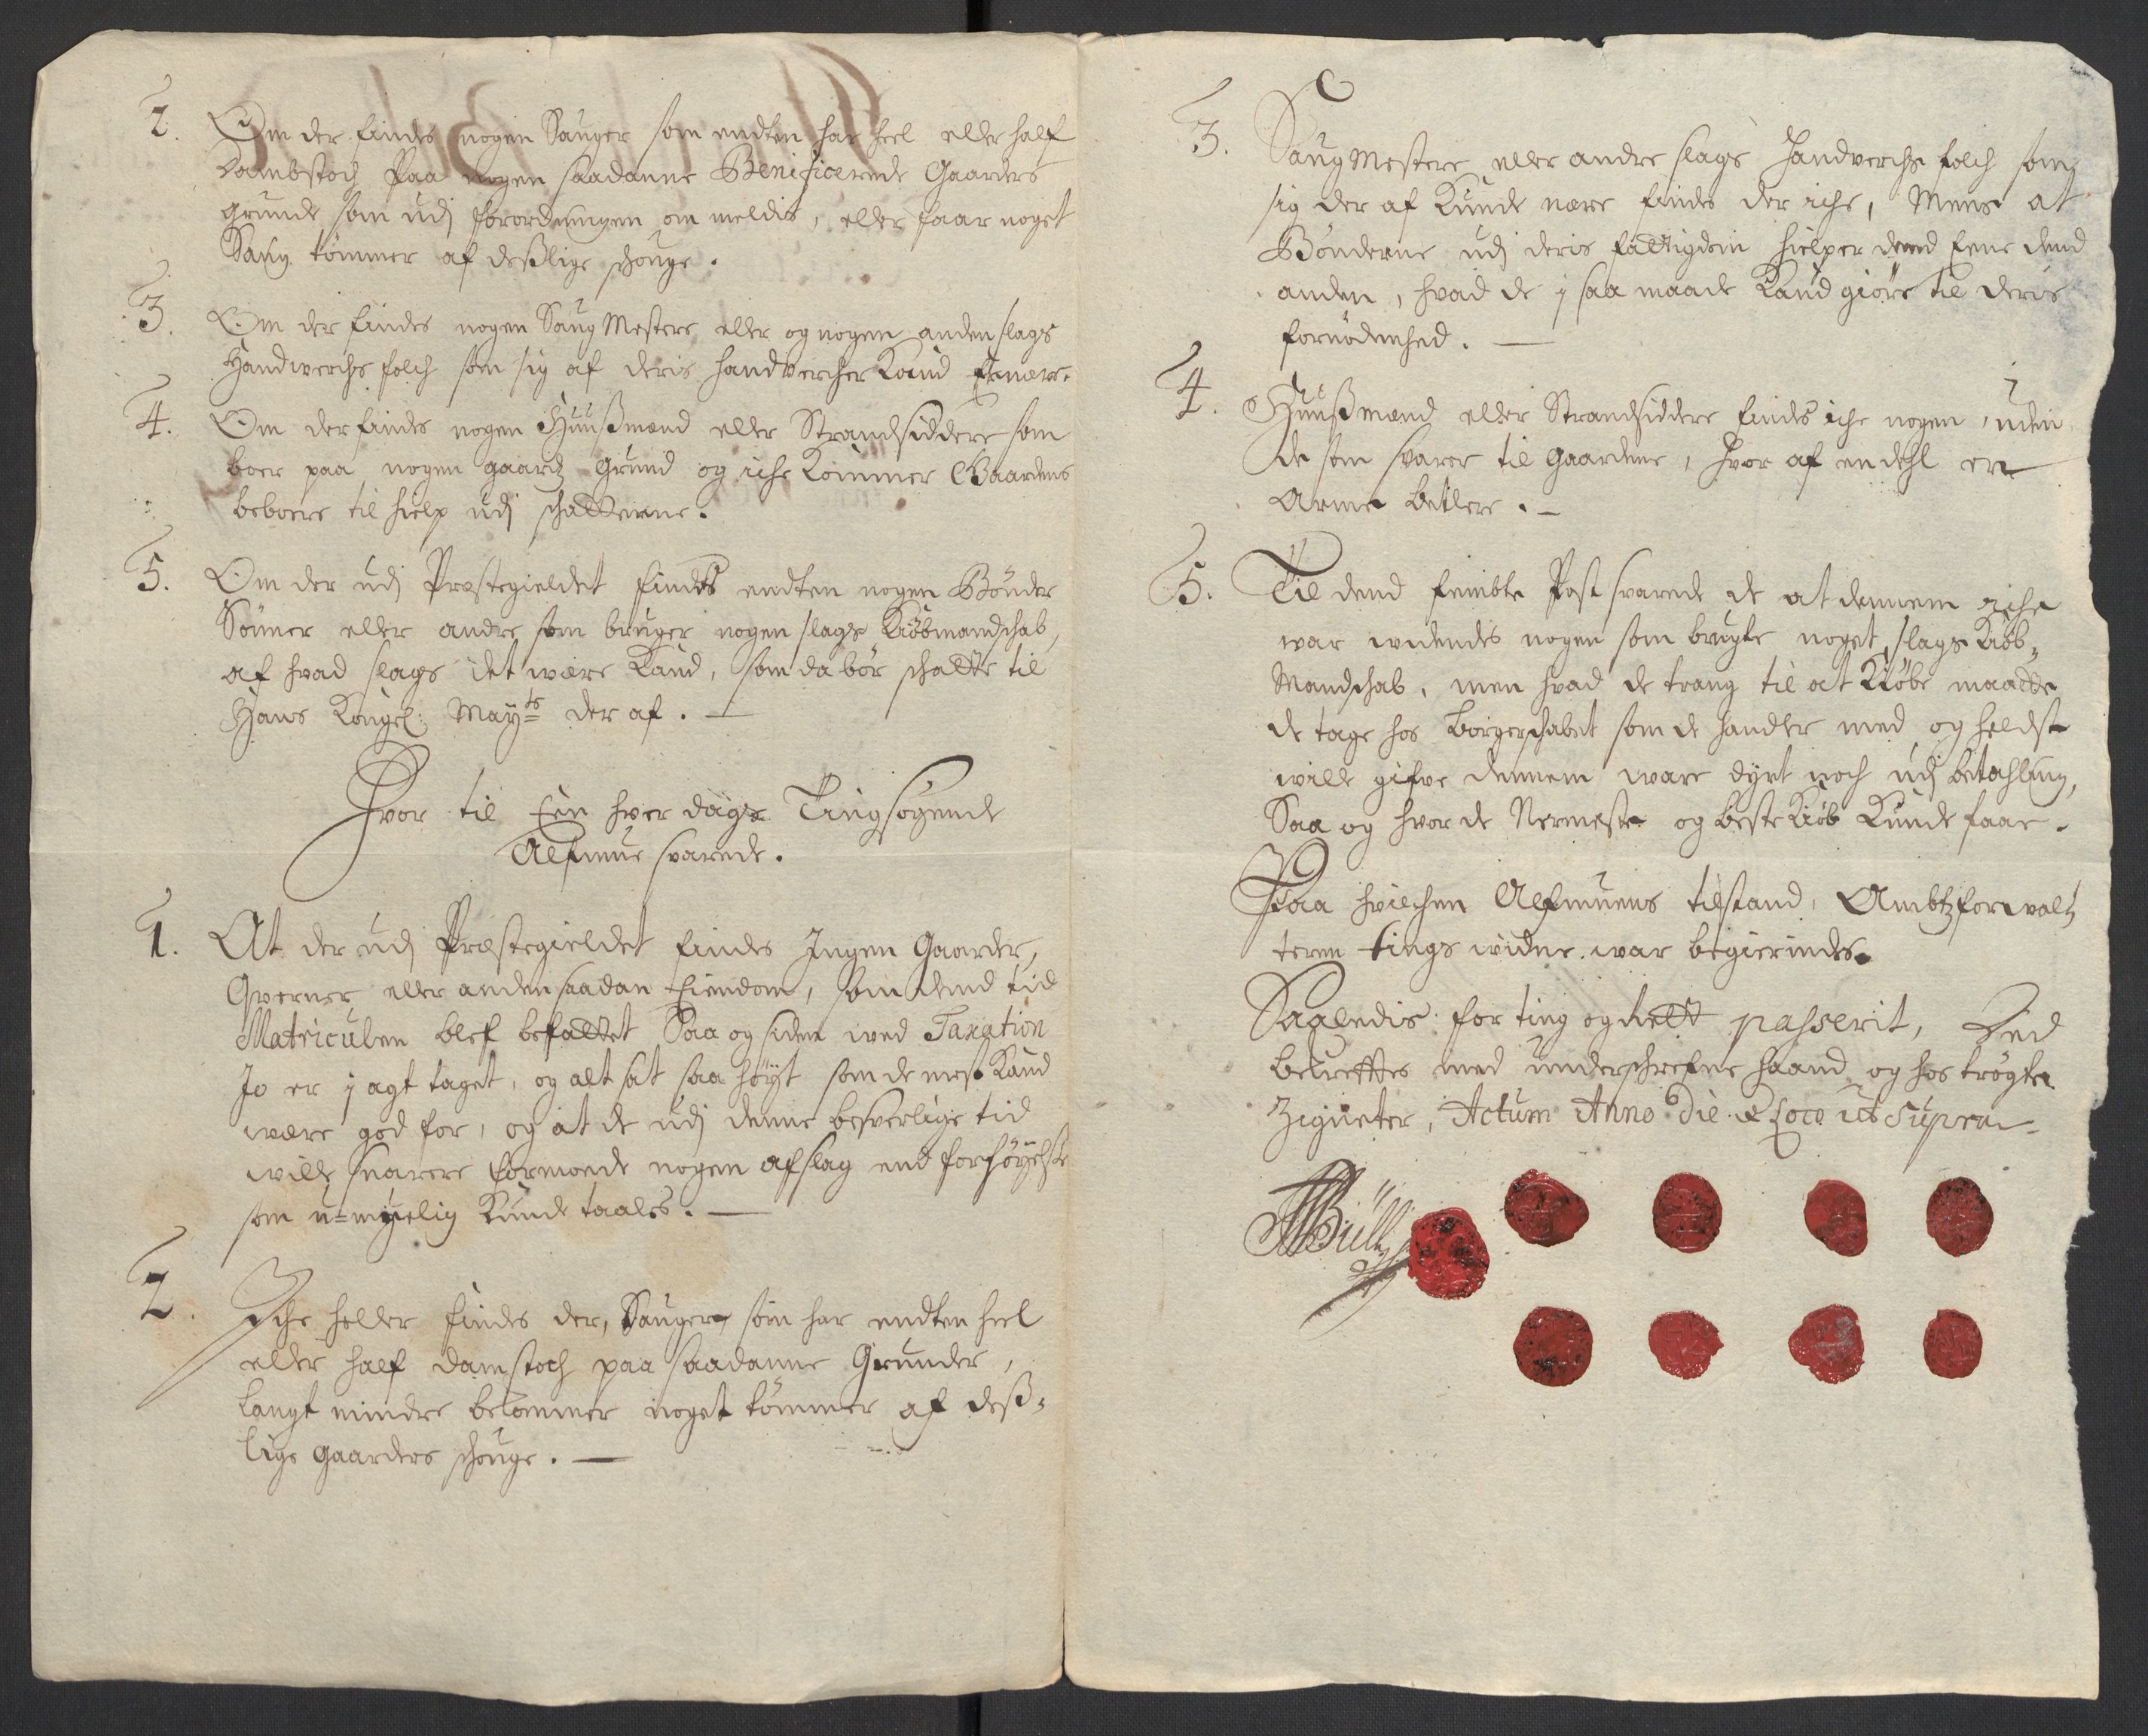 2. Om der findes nogen Sauger som endten har heel eller half
Dambstoch Paa nogen saadanne Benificerede Gaarders
grunde, som udj forordningen om meldis, eller faar noget
Saug tømmer af desslige schouge.
3. Om der findes nogen Saug Mestere eller og nogen anden slags
Handwerchs folch som sig af deris handvercher Kand ernære.
4. Om der findes nogen Huussmænd eller Strandsiddere som
boer paa nogen gaardz Grund og iche Kommer Gaardens
beboere til hielp udj schatterne.
5. Om der udj Præstegieldet findes endten nogen Bønder
Sønner eller andre som bruger nogen slags Kiøbmandschab,
af hvad slags det være Kand, som da bør schatte til
Hans Kongel: Mayts der af. —
Hvor til Een hver dags Tingsøgende
Allmue svarede.
1. At der udj Præstegieldet findes Ingen Gaarder,
Qverner eller anden saadan Eiendom, som dend tid
Matriculen blef befattet Saa og siden wed Taxation
Jo er j agt taget, og alt sat saa høyt som de mest Kand
være god for, og at de udj denne besverlige tid
wille snarere formoede nogen afslag end forhøyelse
som u-myelig Kunde taales. —
2. Iche heller findes der, Sauger som har endten heel
eller half damstoch paa saadanne Grunder,
langt mindre bekommer noget tømmer af dess-
lige gaarders schouge. —
3. Saug Mestere eller andre slags Handverchs folch som
sig der af Kunde nære findes der iche, Mens at
Bønderne udj deris fattigdom hielper dend Eene dend
anden, hvad de j saa maade Kand giøre til deris
fornødenhed. —
4. Huussmænd eller Strandsiddere findes iche nogen, uden
de som svarer til gaardene, hvor af en dehl er
Arme betlere. —
5. Til dend fembte Post svarede de at dennem iche
war widendes nogen som brugte noget slags Kiøb-
Mandschab, men hvad de trang til at Kiøbe maatte
de tage hos borgerschabet som de handler med og heldst
wille gifve dennem ware dyrt noch udj betahling,
Saa og hvor de Nermeste og beste Kiøb Kunde faae.
Paa hvilchen Allmuens tilstand, Ambtzforwalt-
teren tings widne war begierindes.
Saaledis for ting og rett passerit, Ved
becreftes med underschrefne haand og hos trøgte
Zigneter, Actum Anno Die & Loco ut supra.